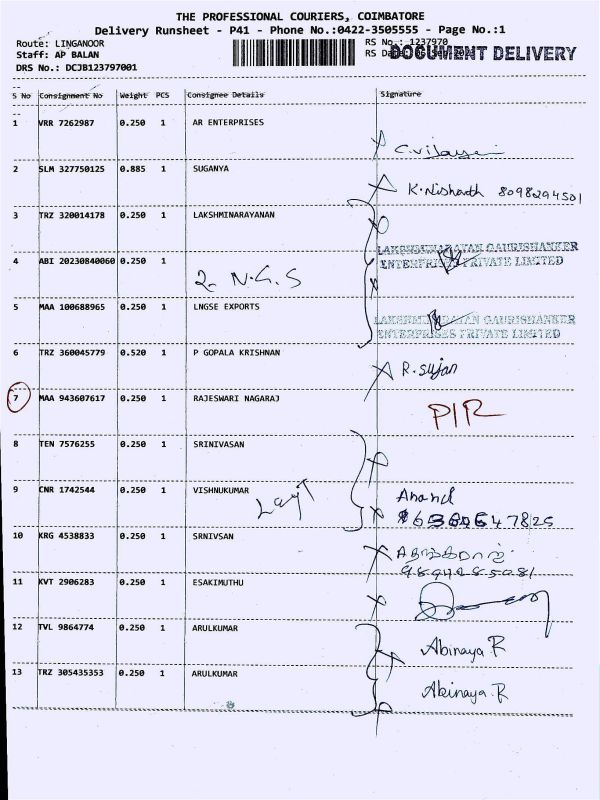 THE PROFESSIONAL COURIERS, COIMBATORE
Delivery Runsheet - P41 - Phone No.:0422-3505555 - Page No.:1
Route: LINGANOOR RS No.: 1237970
Staff: AP BALAN RS Date: DOCUMENT DELIVERY
DRS No.: DCJB123797001
S No Consignment No Weight PCS Consignee Details Signature
1 VRR 7262987 0.250 1 AR ENTERPRISES
2 SLM 327750125 0.885 1 SUGANYA
K. Nishanth 8098294501
3 TRZ 320014178 0.250 1 LAKSHMINARAYANAN
LAKSHMINARAYAN GAURISHANKER
4 ABI 20230840060 0.250 1
ENTERPRISES PRIVATE LIMITED
2- N.G.S
5 MAA 100688965 0.250 1 LNGSE EXPORTS
LAKSHMINARAYAN GAURISHANKER
ENTERPRISES PRIVATE LIMITED
6 TRZ 360045779 0.520 1 P GOPALA KRISHNAN
R. Sujan
7 MAA 943607617 0.250 1 RAJESWARI NAGARAJ
PIR
8 TEN 7576255 0.250 1 SRINIVASAN
9 CNR 1742544 0.250 1 VISHNUKUMAR
Anand
10 KRG 4538833 0.250 1 SRNIVSAN
11 KVT 2906283 0.250 1 ESAKIMUTHU
12 TVL 9864774 0.250 1 ARULKUMAR
Abinaya R
13 TRZ 305435353 0.250 1 ARULKUMAR
Abinaya. R